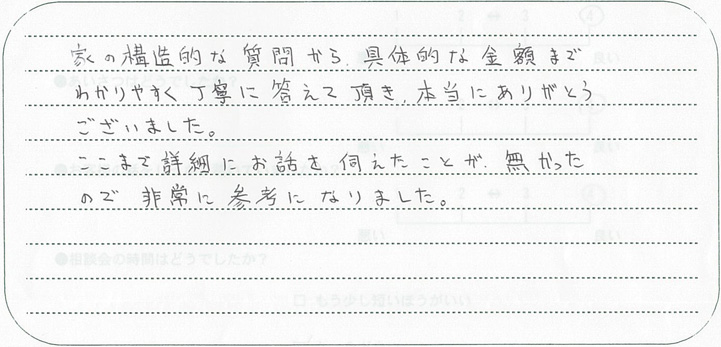 家の構造的な質問から、具体的な金額まで
わかりやすく丁寧に答えて頂き、本当にありがとう
ございました。
ここまで詳細にお話を伺えたことが、無かった
ので非常に参考になりました。